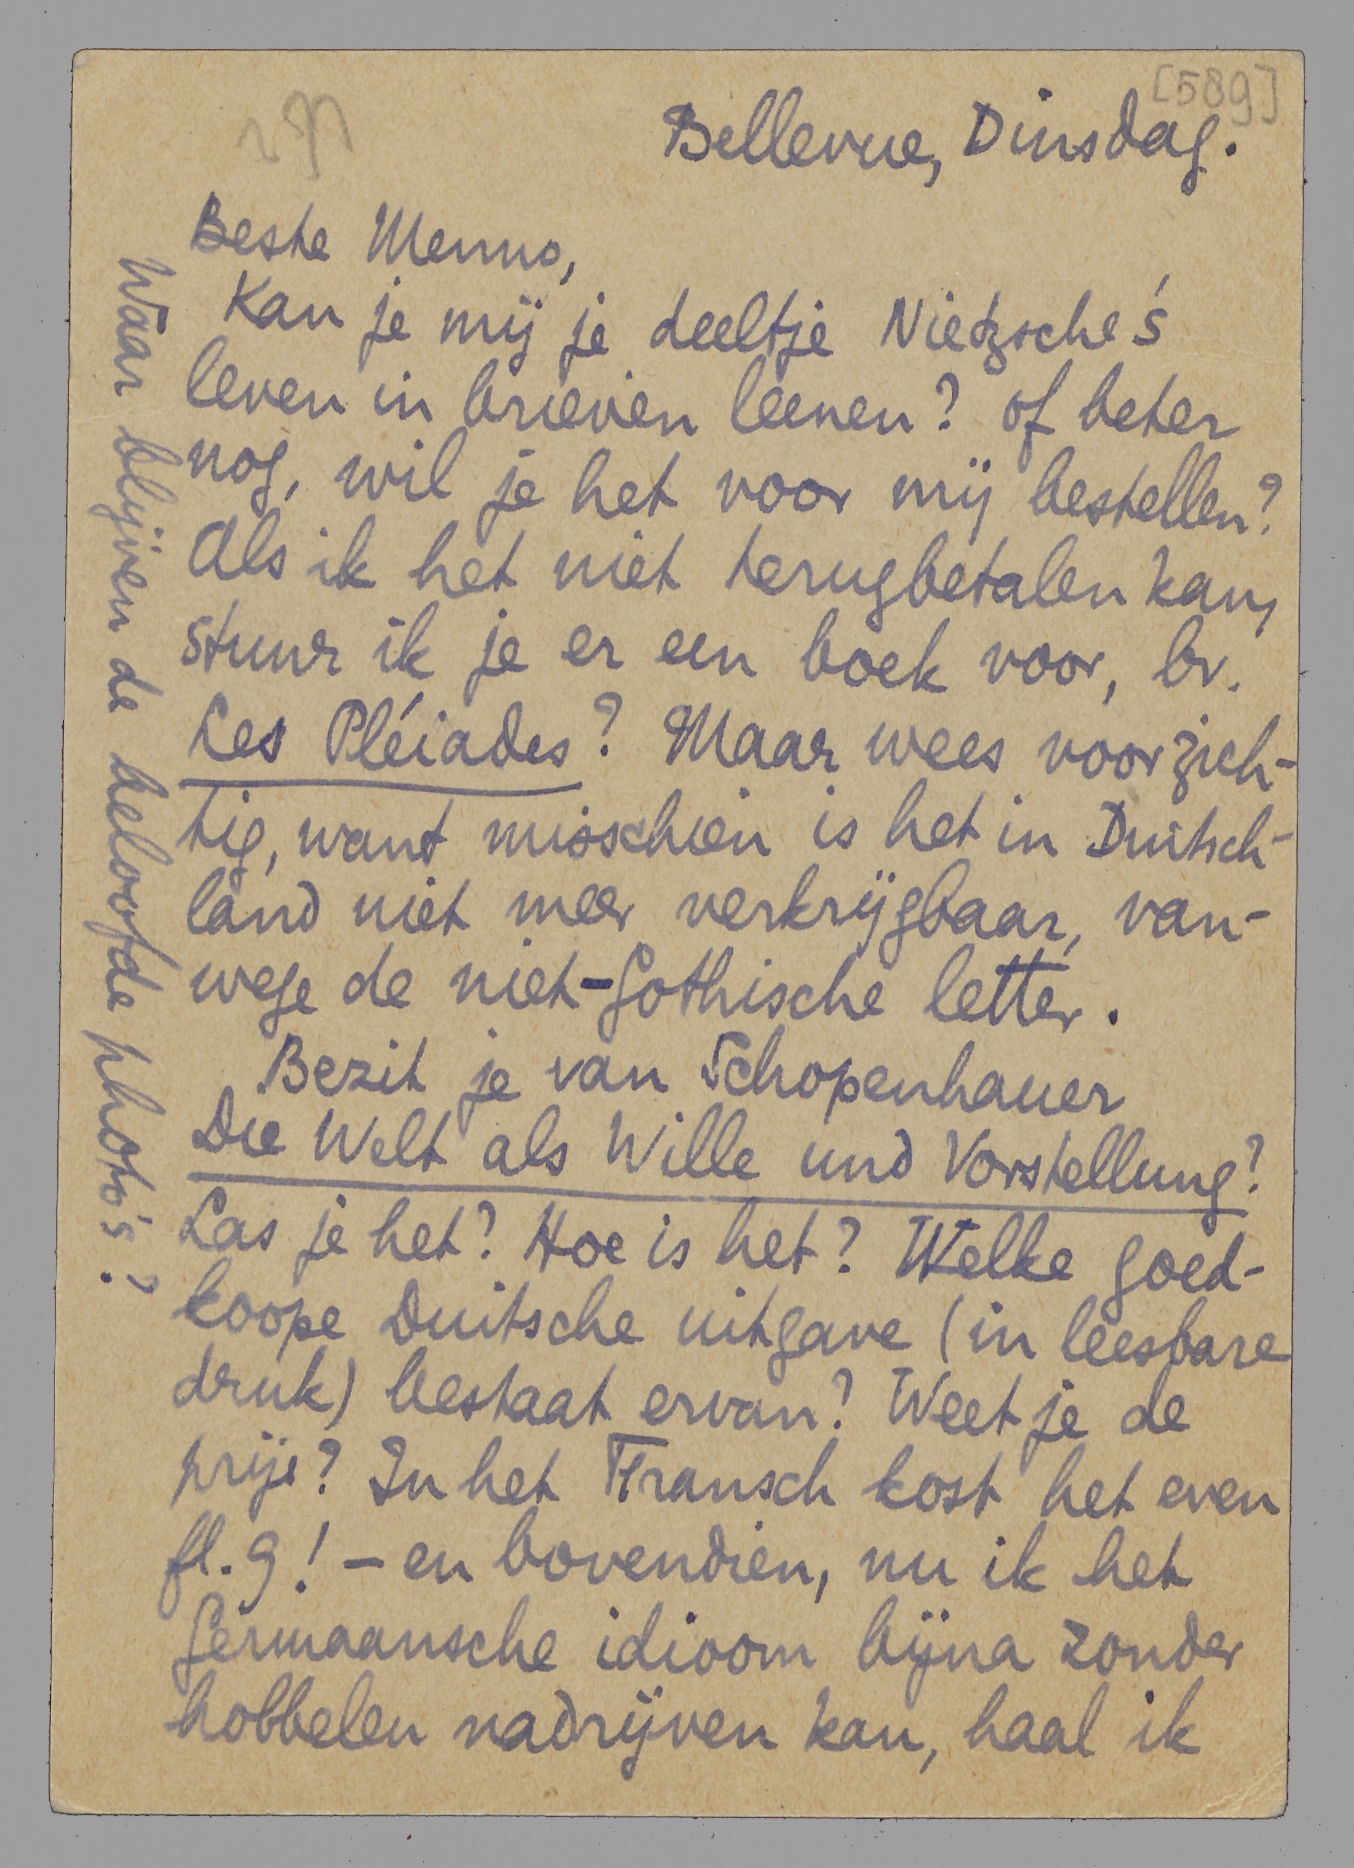 [589]
Bellevue, Dinsdag.
Beste Menno,
Kan je mij je deeltje Nietzsche's
leven in brieven leenen? of beter
nog, wil je het voor mij bestellen?
Als ik het niet terugbetalen kan,
stuur ik je er een boek voor, bv.
Les Pléiades? Maar wees voorzich-
tig, want misschien is het in Duitsch-
land niet meer verkrijgbaar, van-
wege de niet-Gothische letter.
Bezit je van Schopenhauer
Die Welt als Wille und Vorstellung?
Las je het? Hoe is het? Welke goed-
koope Duitsche uitgave (in leesbare
druk) bestaat ervan? Weet je de
prijs? In het Fransch kost het even
fl. 9! – en bovendien, nu ik het
Germaansche idioom bijna zonder
hobbelen nadrijven kan, haal ik
Waar blijven de beloofde photo's?